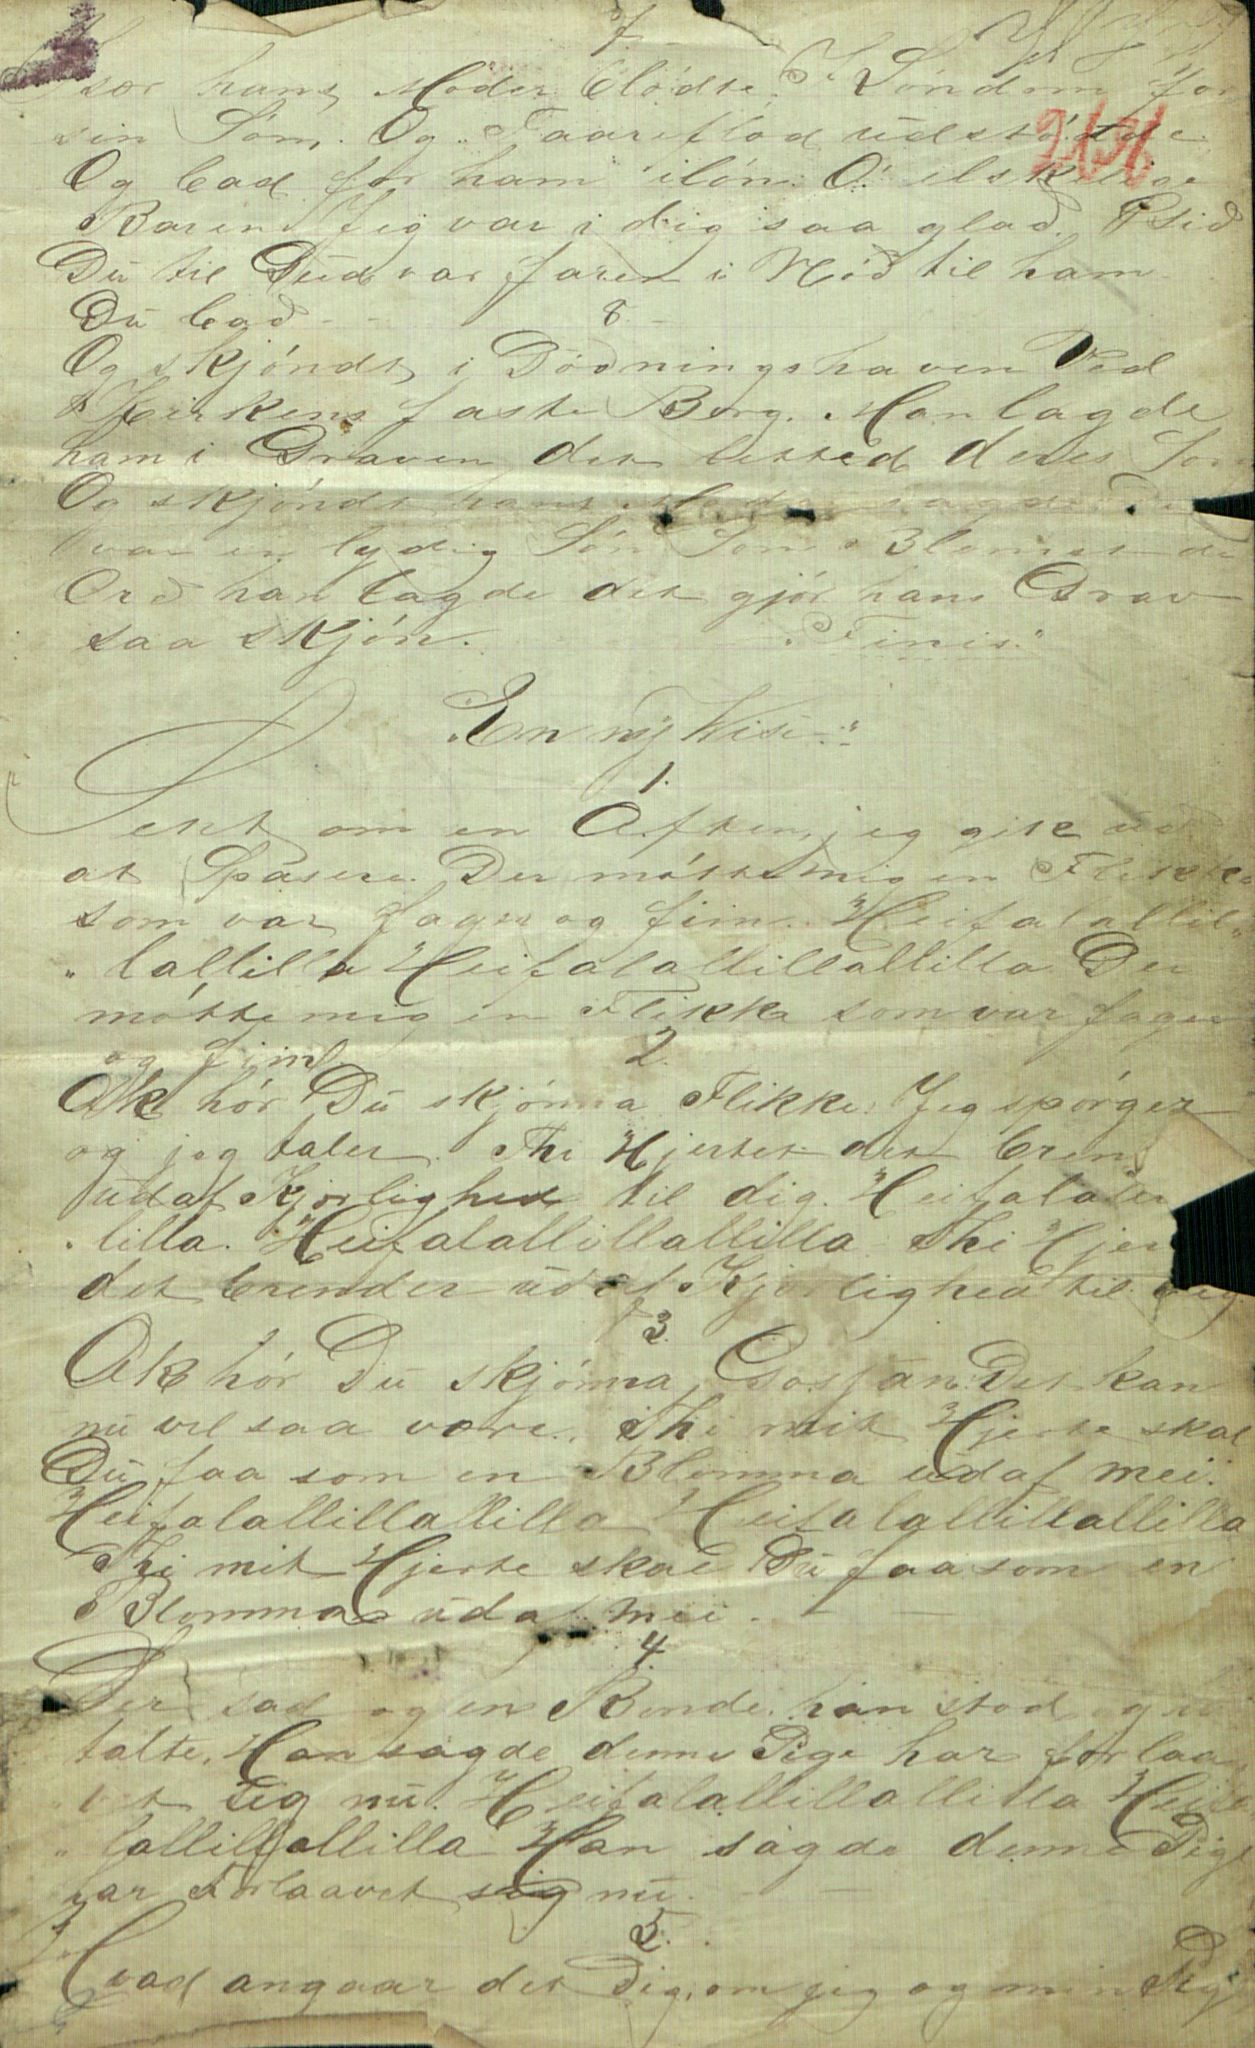 7
hans Moder blödte. I Löndom for
sin Sön. Og Taareflod udstödte
Og bad for ham ilön. O elskelige
Baren Jeg var i dig saa glad. Tsid
Du til Gud var faren i Nöd til ham
Du bad - -
8 -
Og skjöndt i Dödningshaven Ved
Kirkens faste Berg. Man lagde
ham i Graven det listed deres Sorg
Og skjöndt hans sagde Du
var en lydig Sön Som Blomst de
Ord han lagde det gjör hans Grav
saa skjön. "Finis."
"En ny Vise-"
1.
Sent om en Aften, jeg gik ud
at Spasere. Der mötte mig en Flikka
som var fager og fiin. Heifalallil"
" lallilla Heifalallillallilla Der
mötte mig en Flikka som var fager
og fiin.
2.
Ak hör Du skjönna Flikke. Jeg spörger
og jeg taler. Thi Hjertet det bren
udaf Kjørlighed til dig. Heifalalle
lilla. Heifalallillallilla Thi Hjer
det brender udaf Kjørlighed til dig
3.
Ak hör Du skjönna Gosjan Det kan
nu vel saa være. Thi mit Hjerte skal
Du faa som en Blomma udaf mei.
Heifalallillallilla Heifalallillallilla
Thi mit Hjerte skal Du faa som en
Blomma udaf mei. - -
4.
Der sad og en Bonde han stod og
talte. Han sagde denne Pige har forlaa
vet sig nu. Heifalallillallilla Heifa
" lallillallilla Han sagde denne Pige
har Forlaavet sig nu. - -
5.
Hvad angaar det Dig, om jeg og min